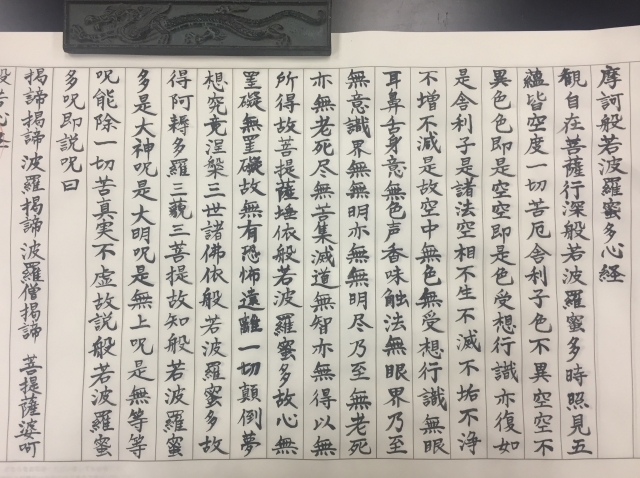 摩訶般若波羅蜜多心経
観自在菩薩行深般若波羅蜜多時照見五
蘊皆空度一切苦厄舎利子色不異空空不
異色色即是空空即是色受想行識亦復如
是舎利子是諸法空相不生不滅不垢不浄
不増不減是故空中無色無受想行識無眼
耳鼻舌身意無色声香味触法無眼界乃至
無意識界無無明亦無無明尽乃至無老死
亦無老死尽無苦集滅道無智亦無得以無
所得故菩提薩埵依般若波羅蜜多故心無
罣礙無罣礙故無有恐怖遠離一切顛倒夢
想究竟涅槃三世諸佛依般若波羅蜜多故
得阿耨多羅三藐三菩提故知般若波羅蜜
多是大神呪是大明呪是無上呪是無等等
呪能除一切苦真実不虚故説般若波羅蜜
多呪即説呪曰
揭諦揭諦波羅揭諦波羅僧揭諦菩提薩婆呵
般若心経